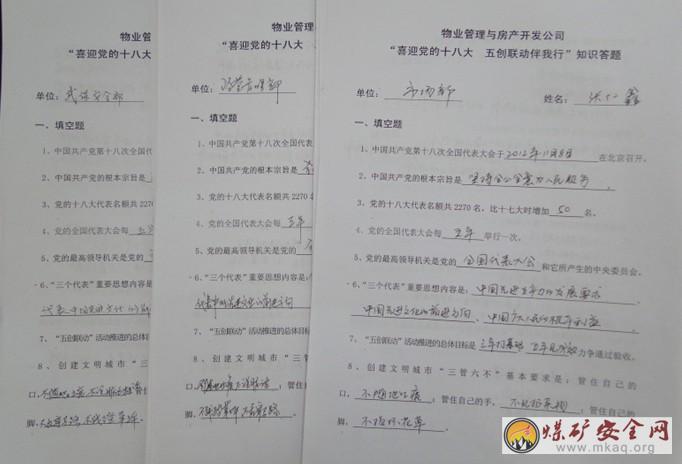 物业管理
“喜迎党的十八大
单位：武保安全部
一、填空题
1、中国共产党第十八次全国代
2、中国共产党的根本宗旨是
3、党的十八大代表名额共 2270
4、党的全国代表大会每
5、党的最高领导机关是党的
6、“三个代表”重要思想内容是：
7、“五创联动”活动推进的总体
8、创建文明城市“三
口，
脚，
物业管
“喜迎党的十八大
单位：经营管理部
一、填空题
1、中国共产党第十八次全国代表
2、中国共产党的根本宗旨是
3、党的十八大代表名额共 2270
4、党的全国代表大会每 五年
5、党的最高领导机关是党的
6、“三个代表”重要思想内容是：
7、“五创联动”活动推进的总体目标
8、创建文明城市“三管
口， ；管住自己的
脚，
物业管理与房产开发公司
“喜迎党的十八大 五创联动伴我行”知识答题
单位：市场部 姓名：张仁鑫
一、填空题
1、中国共产党第十八次全国代表大会于2012年11月8日在北京召开。
2、中国共产党的根本宗旨是坚持全心全意为人民服务。
3、党的十八大代表名额共 2270 名，比十七大时增加 50 名。
4、党的全国代表大会每 五年 举行一次。
5、党的最高领导机关是党的 全国代表大会 和它所产生的中央委员会。
6、“三个代表”重要思想内容是：中国先进生产力的发展要求、
中国先进文化的前进方向、中国广大人民的根本利益。
7、“五创联动”活动推进的总体目标是 三年打基础 五年见成效 力争通过验收。
8、创建文明城市“三管六不”基本要求是：管住自己的
口，不随地吐痰 ；管住自己的手，不乱扔杂物 ；管住自己的
脚，不 花草。
煤矿安全网
www.mkaq.org